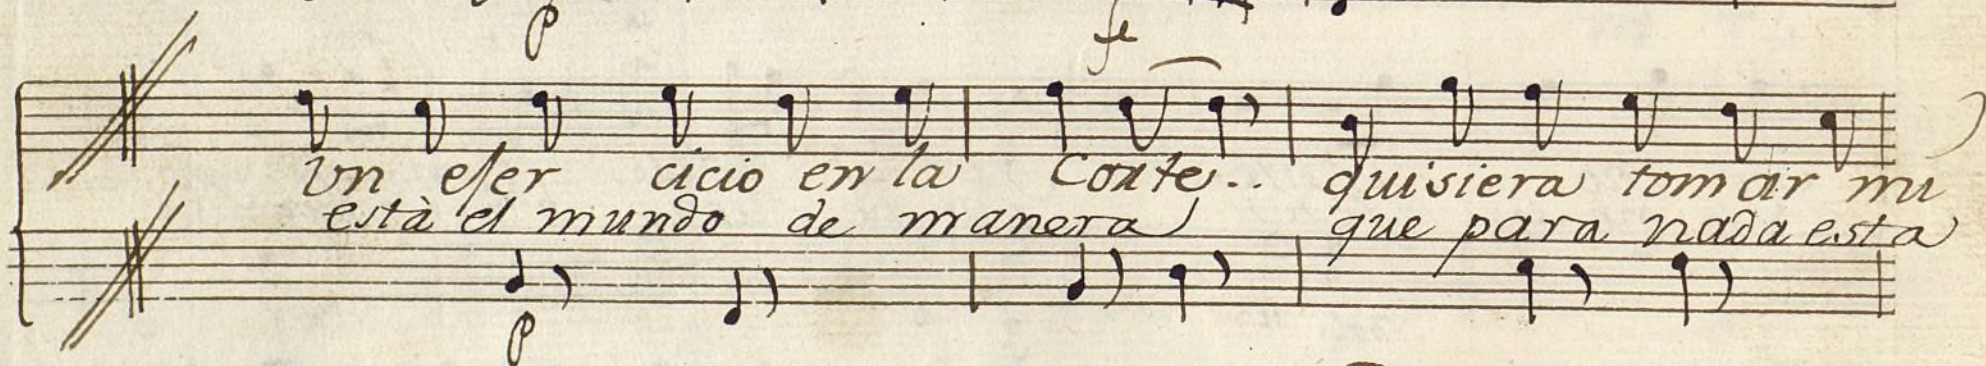 p fe
Un eser cicio en la Corte.. quisiera tomar mi
està el mundo de manera que para nada esta
p